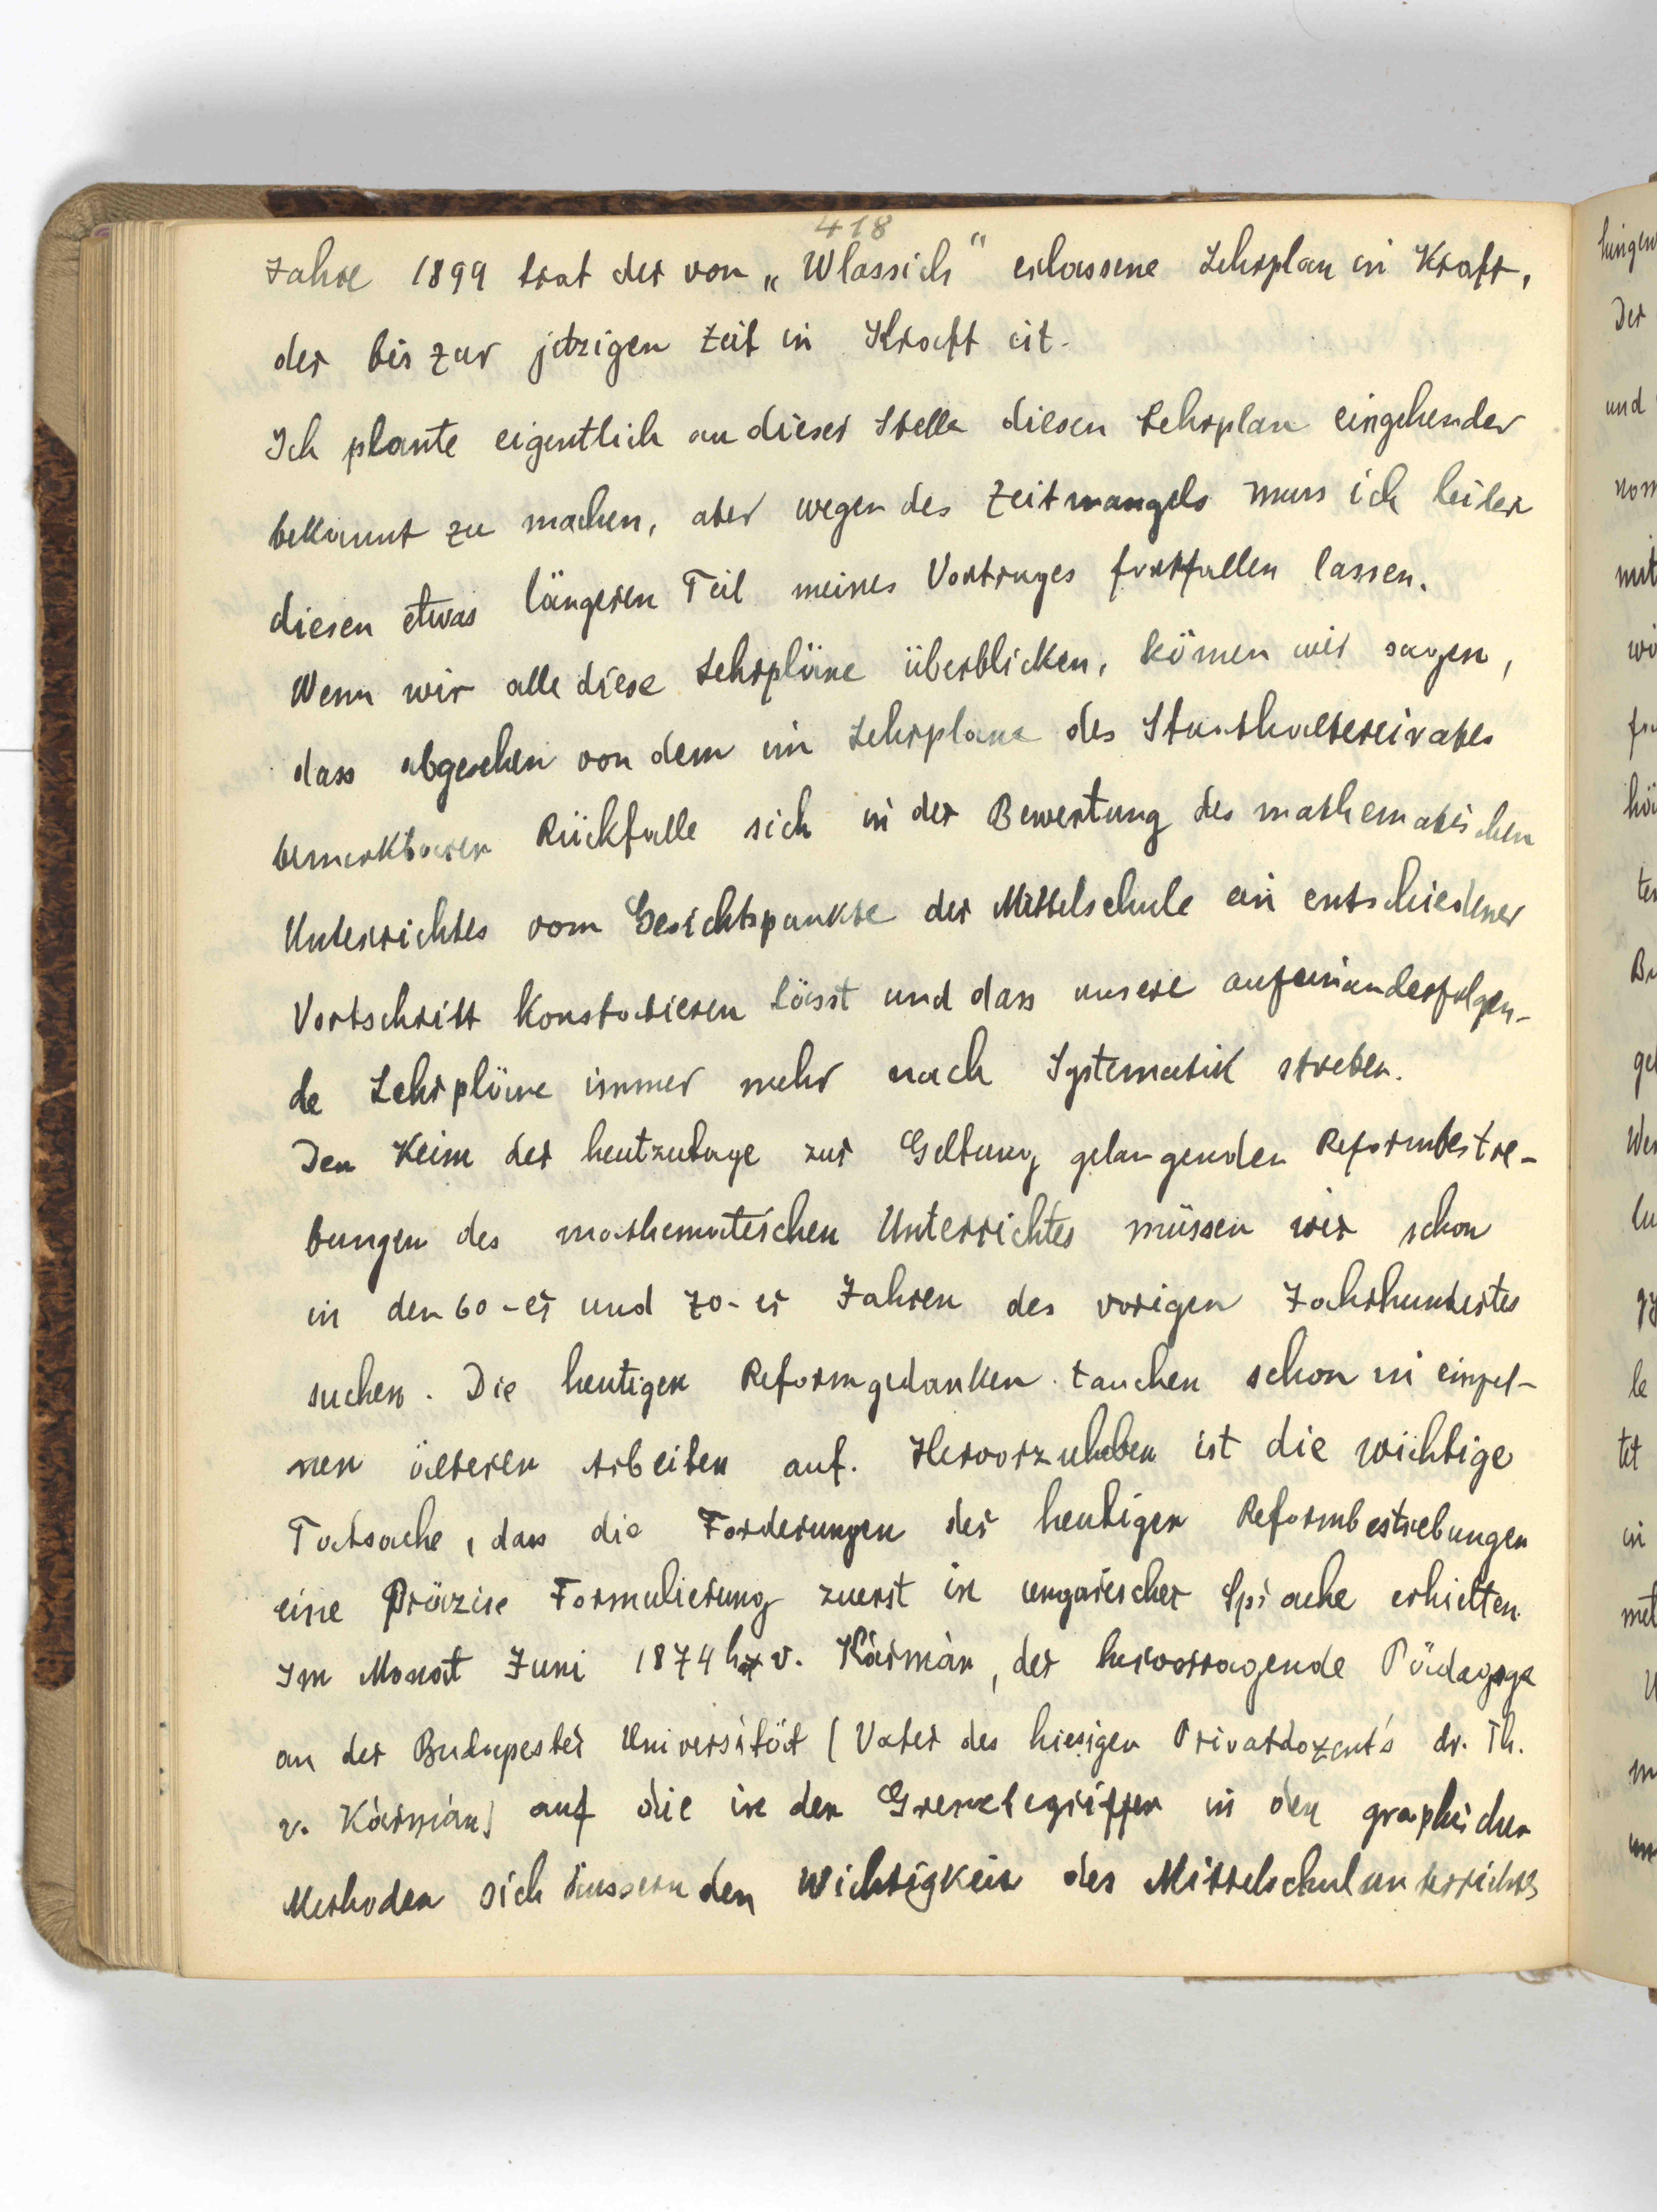 418
Jahre 1899 trat der von „Wlassich" erlassene Lehrplan in Kraft,
der bis zur jetzigen Zeit in Kraft ist.
Ich plante eigentlich an dieser Stelle diesen Lehrplan eingehender
bekannt zu machen, aber wegen des Zeitmangels muss ich leider
diesen etwas längeren Teil meines Vortrages fortfallen lassen.
Wenn wir alle diese Lehrpläne überblicken, können wir sagen,
dass abgesehen von dem im Lehrplane des Statthaltereirates
bemerkbaren Rückfalle sich in der Bewertung des mathematischen
Unterrichtes vom Gesichtspunkte der Mittelschule ein entschiedener
Vortschritt konstatieren lässt und dass unsere aufeinanderfolgen-
de Lehrpläne immer mehr nach Systematik streben.
Den Keim der heutzutage zur Geltung gelangenden Reformbestre-
bungen des mathematischen Unterrichtes müssen wir schon
in den 60-er und 70-er Jahren des vorigen Jahrhundertes
suchen. Die heutigen Reformgedanken tauchen schon in einzel-
nen älteren Arbeiten auf. Hervorzuheben ist die wichtige
Tatsache, dass die Forderungen der heutigen Reformbestrebungen
eine Präzise Formulierung zuerst in ungarischer Sprache erhielten.
Im Monat Juni 1874 hat v. Kármán, der hervorragende Pädagoge
an der Budapester Universität (Vater des hiesigen Privatdozent's dr. Th.
v. Kármán) auf die in den Grenzbegriffen in den graphischen
Methoden sich äussernden Wichtigkeit des Mittelschulunterrichtes
hingew
Der
und
nom
mit
wi
fra
hö
ter
Bu
gel
Wer
lu
le
tet
in
met